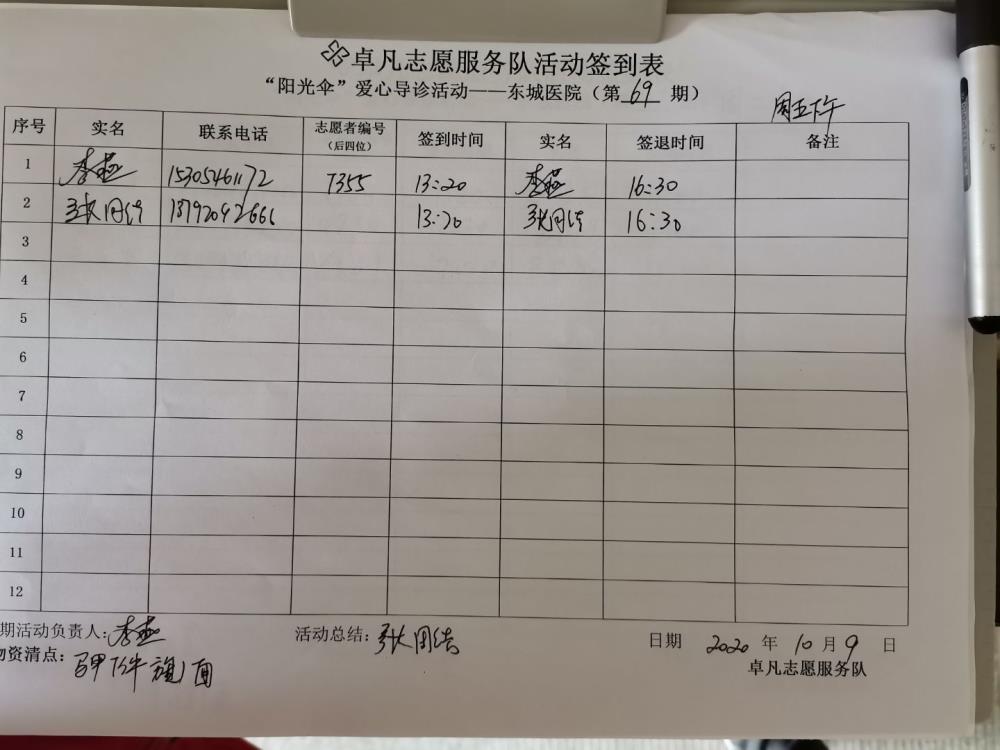 卓凡志愿服务队活动签到表
“阳光伞”爱心导诊活动——东城医院（第 69 期）
周五下午
序号 实名 联系电话 志愿者编号（后四位） 签到时间 实名 签退时间 备注
1 李燕 15305461172 7355 13:20 李燕 16:30
2 张同洁 18792092666 13:20 张同洁 16:30
3
4
5
6
7
8
9
10
11
12
期活动负责人：李燕 活动总结：张同洁 日期 2020 年 10 月 9 日
物资清点：马甲 1件 旗1面 卓凡志愿服务队